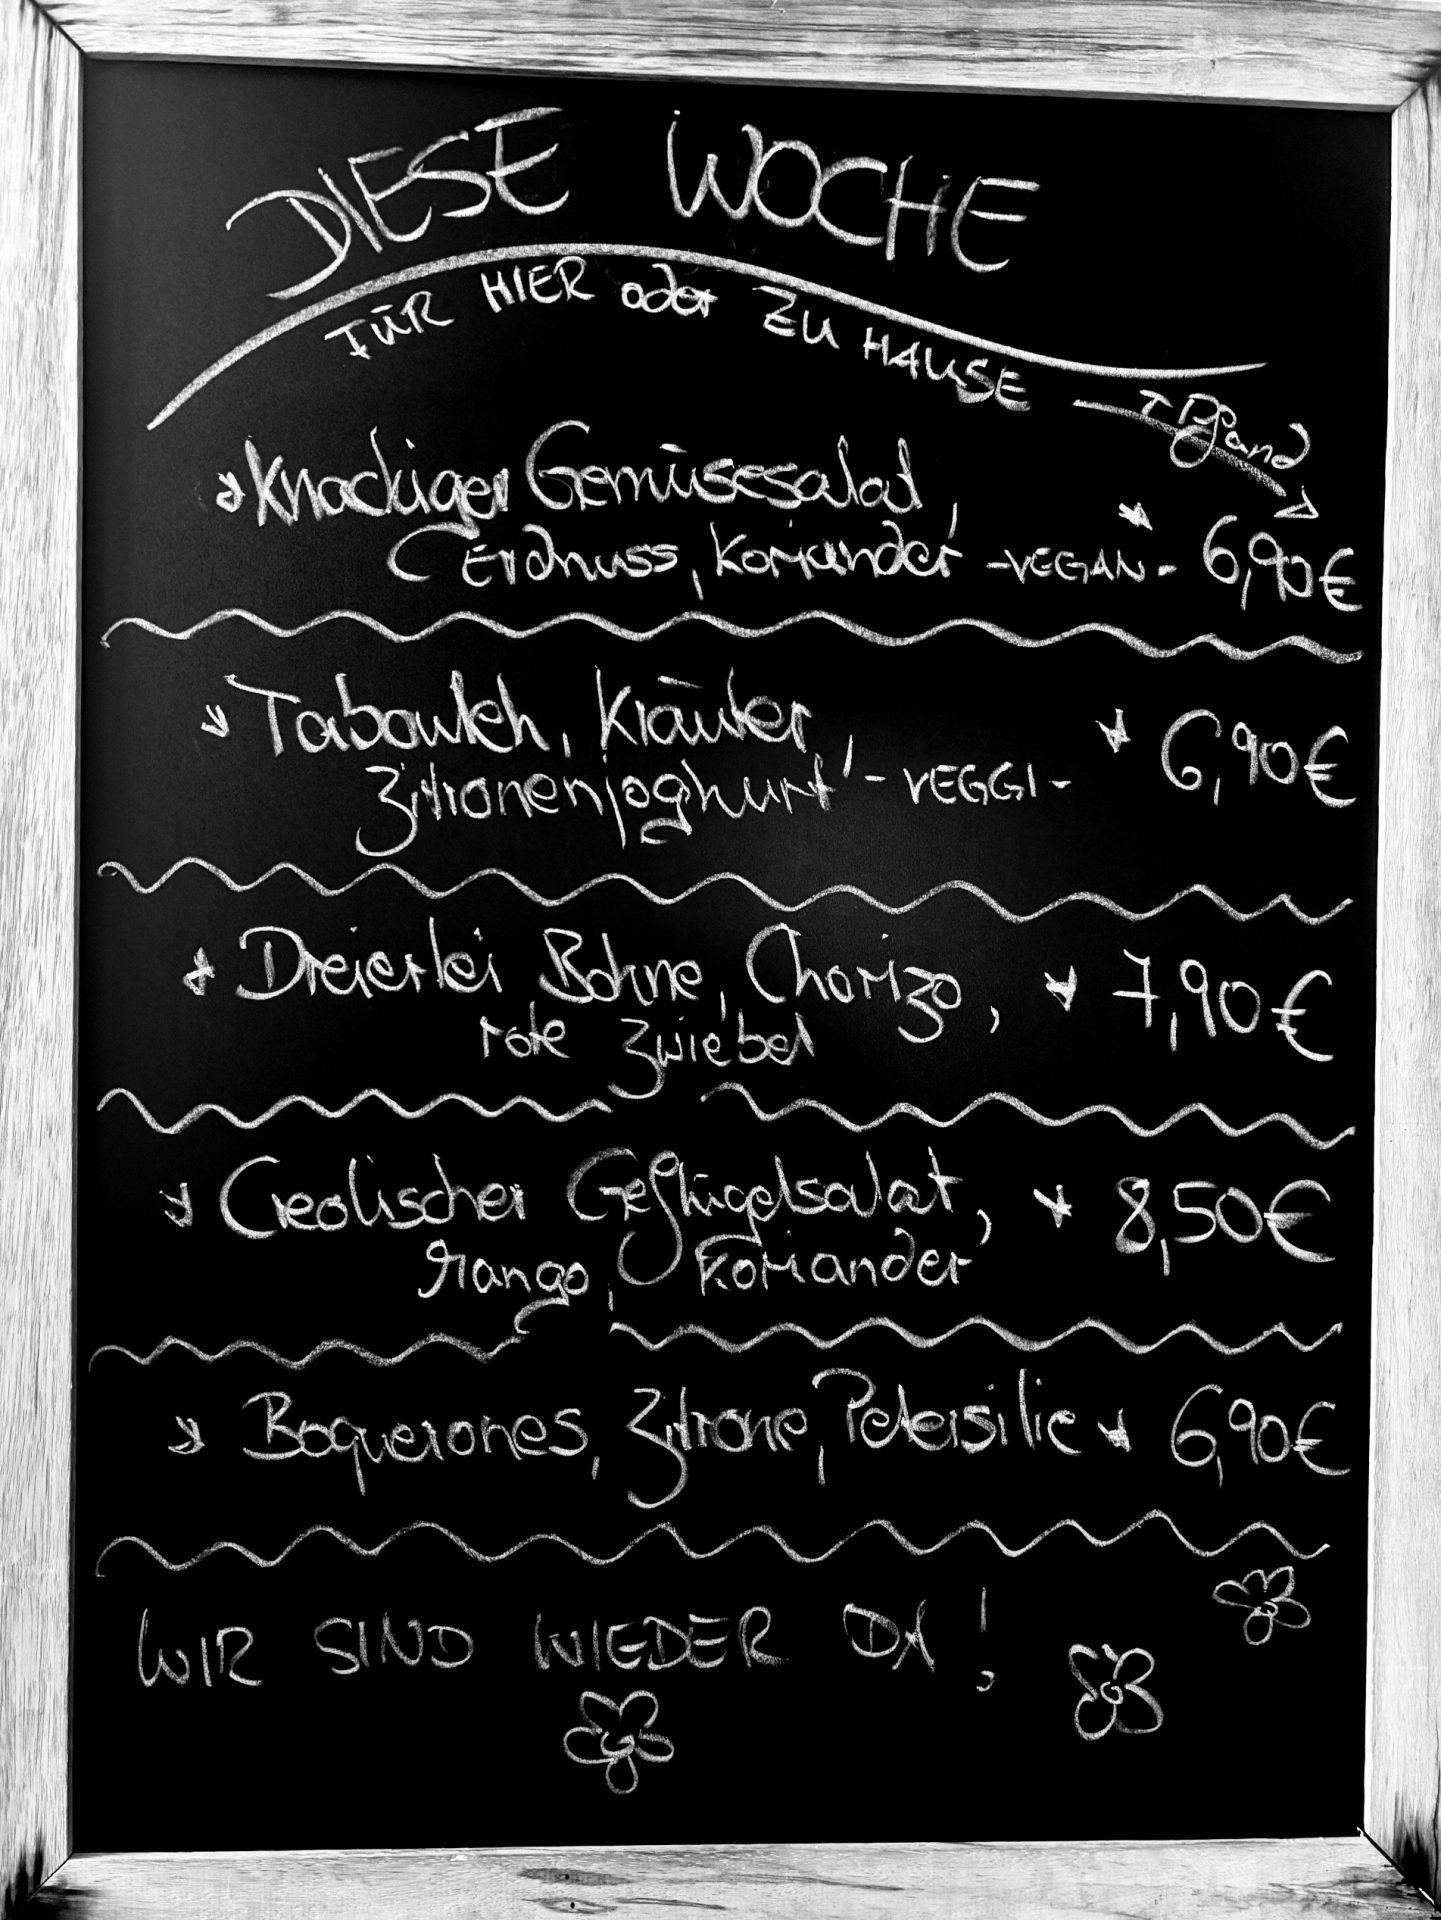 DIESE WOCHE
FÜR HIER oder ZU HAUSE
+ Pfand
Knackiger Gemüsesalat,
Erdnuss, Koriander -VEGAN- 6,90€
Tabouleh, Kräuter,
Zitronenjoghurt -VEGGI- 6,90€
Dreierlei Bohne, Chorizo, 7,90€
rote Zwiebel
Creolischer Geflügelsalat, 8,50€
Mango, Koriander
Boquerones, Zitrone, Petersilie 6,90€
WIR SIND WIEDER DA!